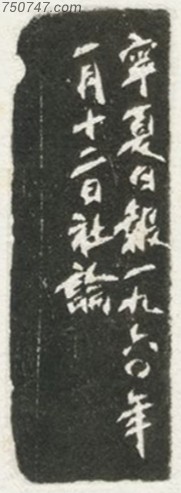 750747.com
寧夏日報一九六〇年
一月十二日社論